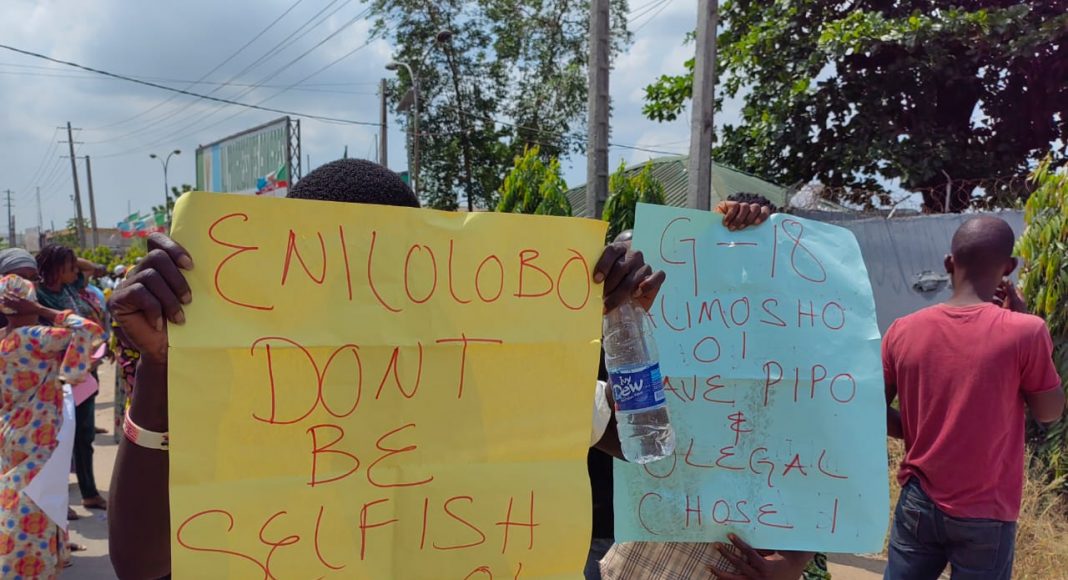 ENILOLOBO
DONT
BE
SELFISH
G-18
ALIMOSHO
01
AVE PIPO
&
OLEGAL
CHOSE 1
Ivy
Dew